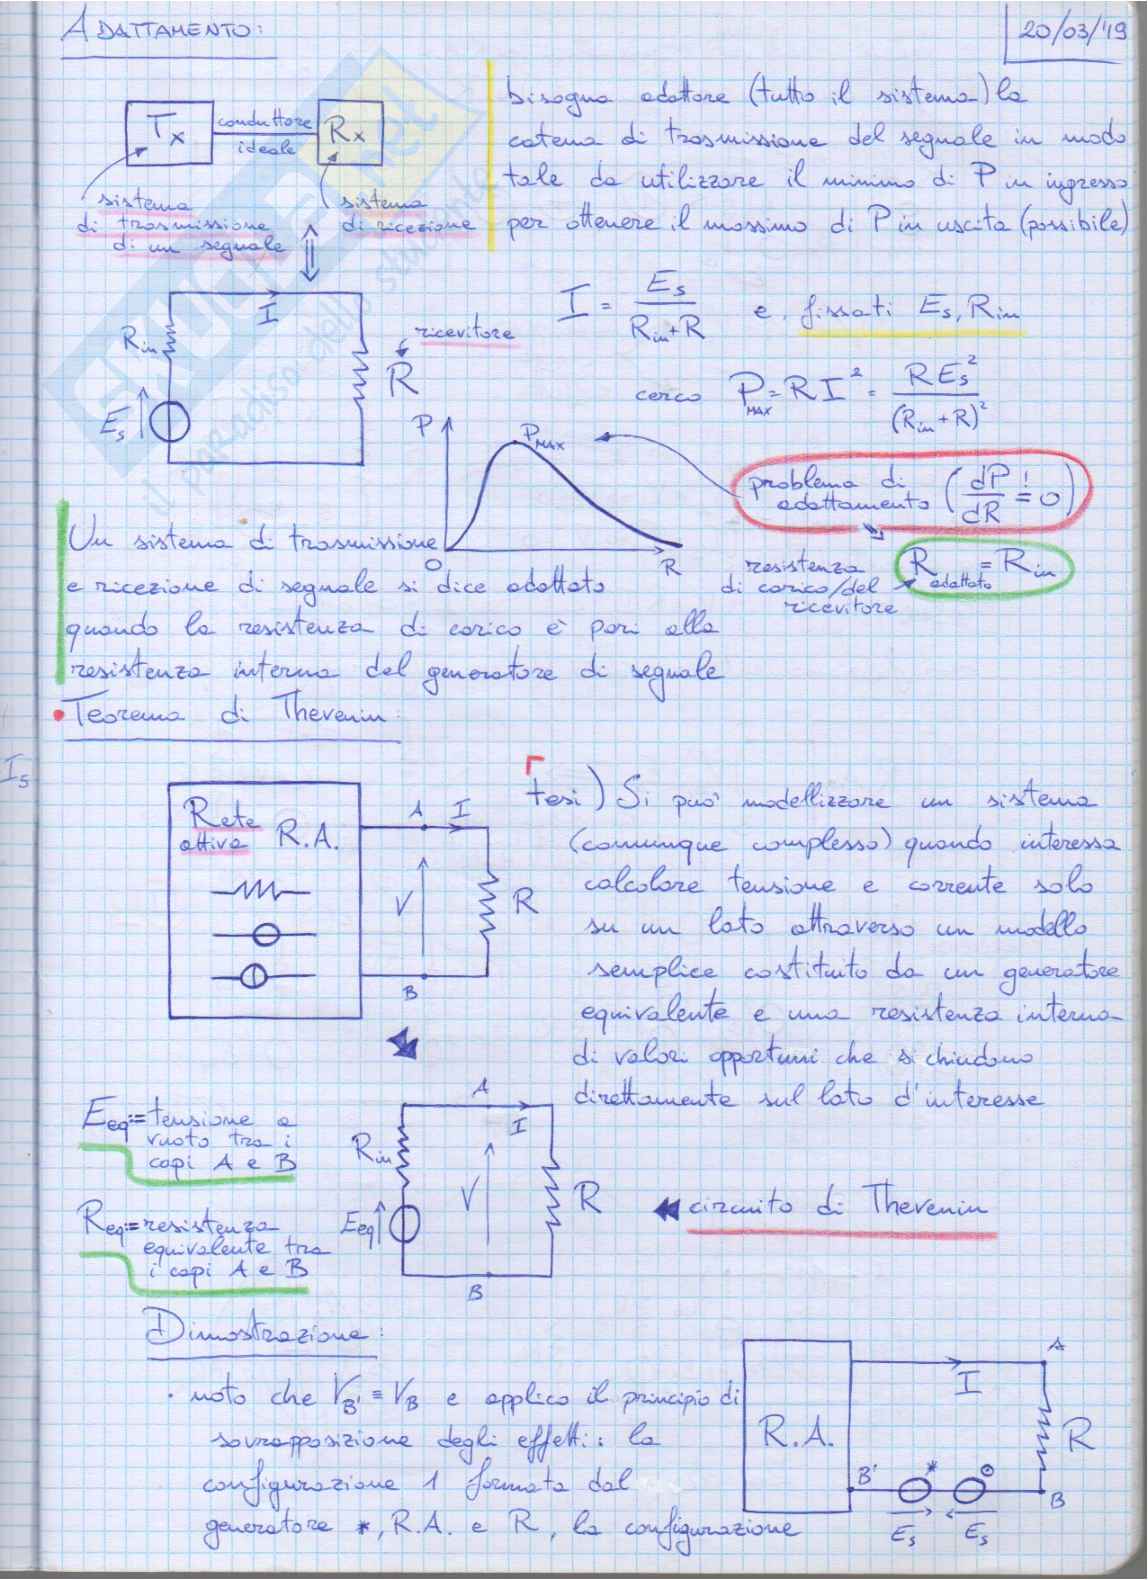 ADATTAMENTO:
20/03/'19
Tx
conduttore
ideale
Rx
sistema
di trasmissione
di un segnale
sistema
di ricezione
bisogna adattare (tutto il sistema) la
catena di trasmissione del segnale in modo
tale da utilizzare il minimo di P in ingresso
per ottenere il massimo di P in uscita (possibile)
I
Rin
Es
ricevitore
R
I = Es / (Rin+R) e, fissati Es, Rin
cerco PMAX = R I² = R Es² / (Rin+R)²
P
PMAX
O
R
problema di
adattamento (dP/dR != 0)
resistenza
di carico/del
ricevitore
Radattato = Rin
Un sistema di trasmissione
e ricezione di segnale si dice adattato
quando la resistenza di carico è pari alla
resistenza interna del generatore di segnale
• Teorema di Thevenin:
Is
Rete
attiva R.A.
A I
V
R
B
tesi) Si può modellizzare un sistema
(comunque complesso) quando interessa
calcolare tensione e corrente solo
su un lato attraverso un modello
semplice costituito da un generatore
equivalente e una resistenza interna
di valori opportuni che si chiudono
direttamente sul lato d'interesse
Eeq:= tensione a
vuoto tra i
capi A e B
Req:= resistenza
equivalente tra
i capi A e B
A
I
Rin
Eeq
V
R
B
circuito di Thevenin
Dimostrazione:
· noto che VB' ≡ VB e applico il principio di
sovrapposizione degli effetti: la
configurazione 1 formata dal
generatore *, R.A. e R, la configurazione
R.A.
A
I
R
B'
*
B
Es
Es
SKUOLA.net
il paradiso dello studente